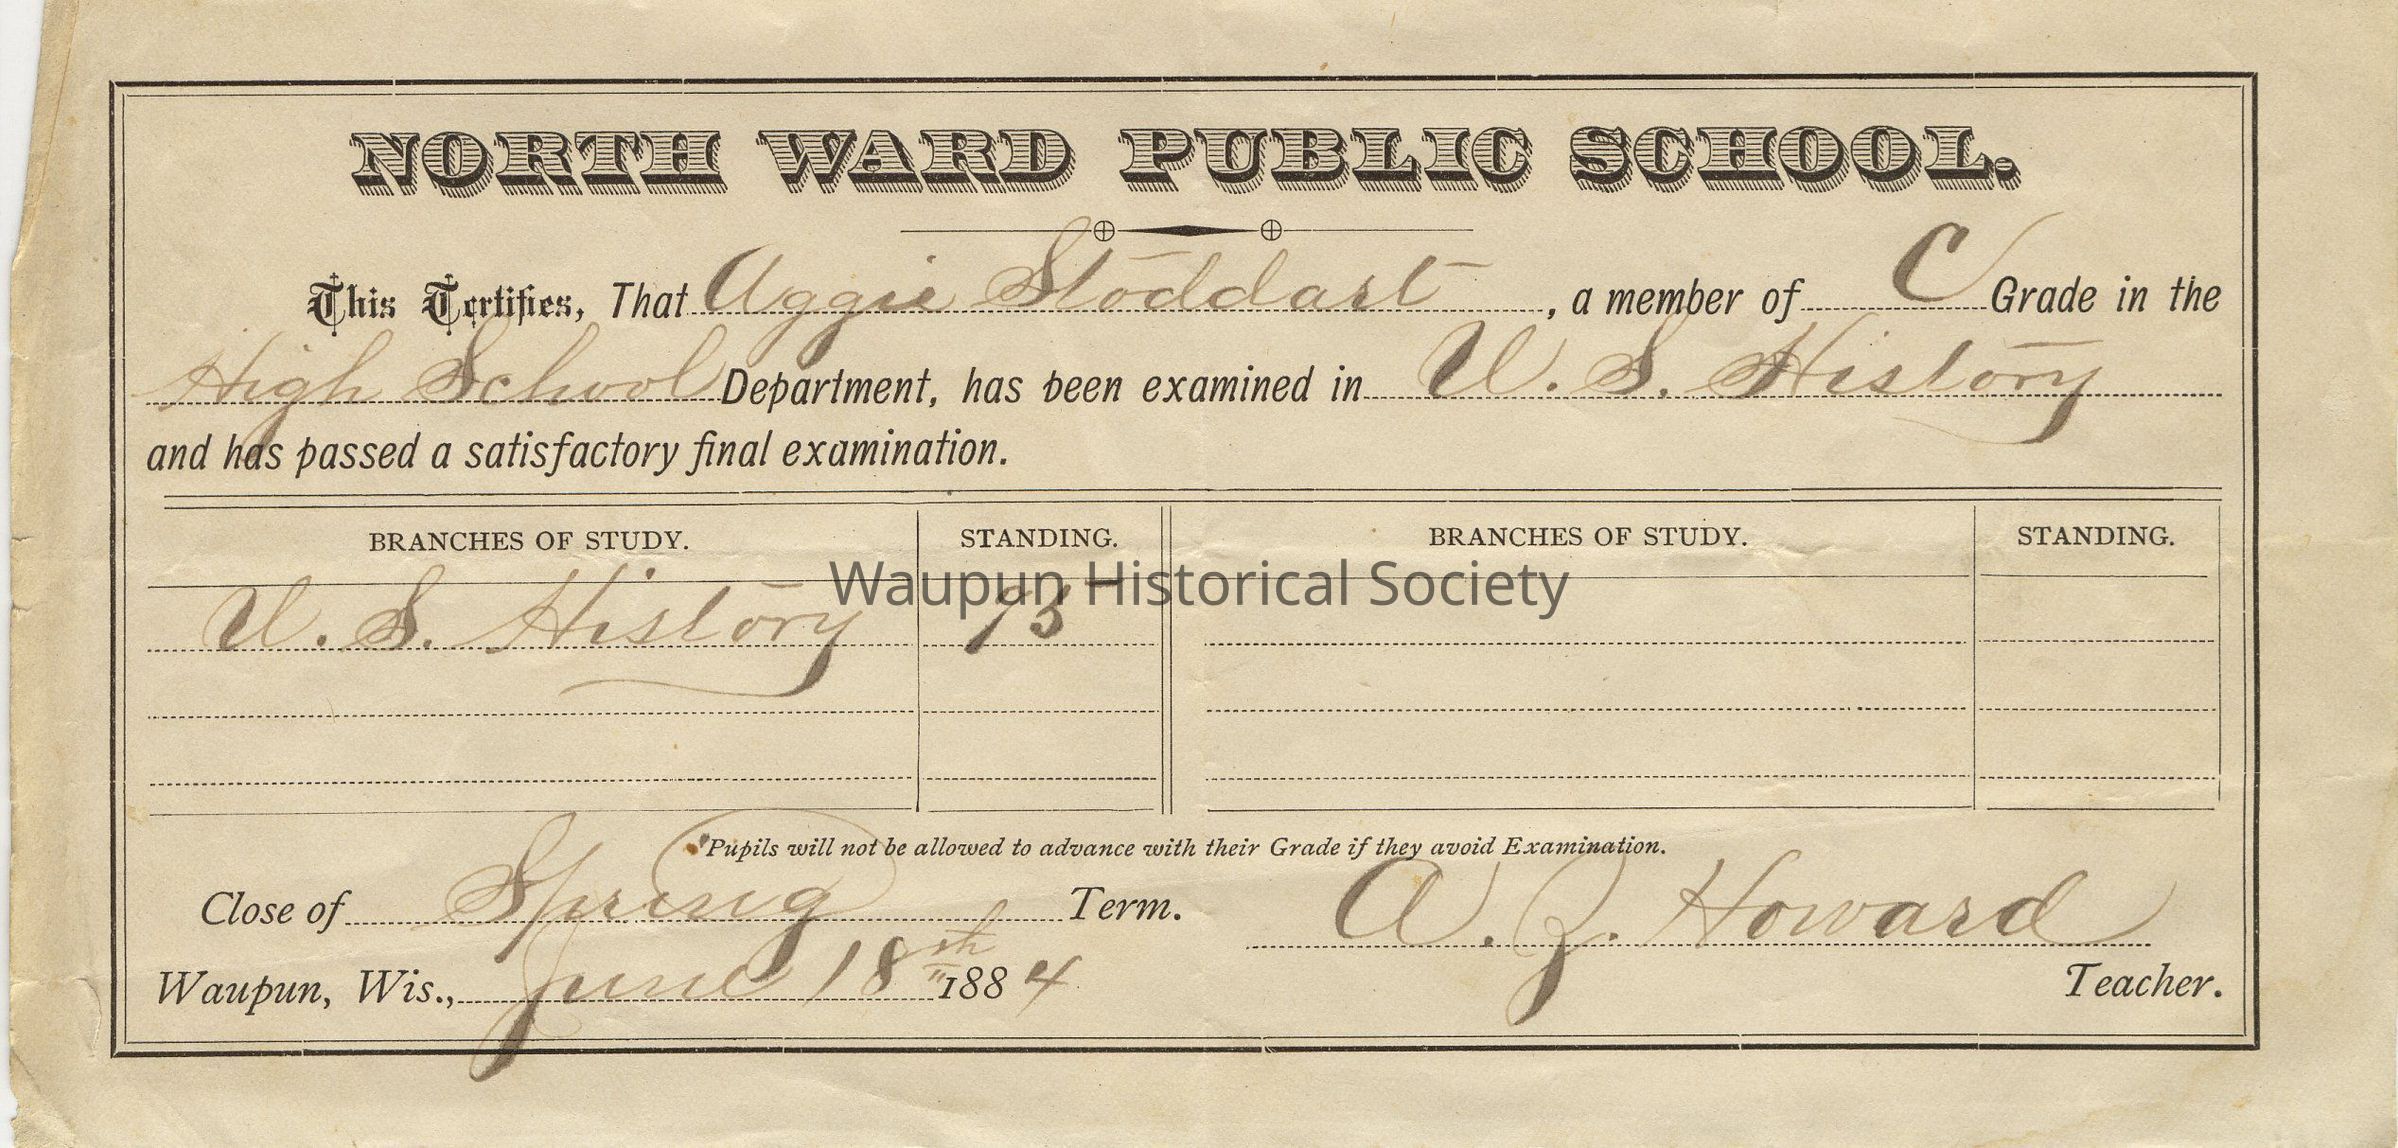 NORTH WARD PUBLIC SCHOOL.
This Certifies, That Aggie Stoddart, a member of C Grade in the
High School Department, has been examined in U. S. History
and has passed a satisfactory final examination.
BRANCHES OF STUDY. STANDING. BRANCHES OF STUDY. STANDING.
Waupun Historical Society
U. S. History
"Pupils will not be allowed to advance with their Grade if they avoid Examination.
Close of Spring Term. A. Z. Howard
Waupun, Wis., June 18th 1884 Teacher.